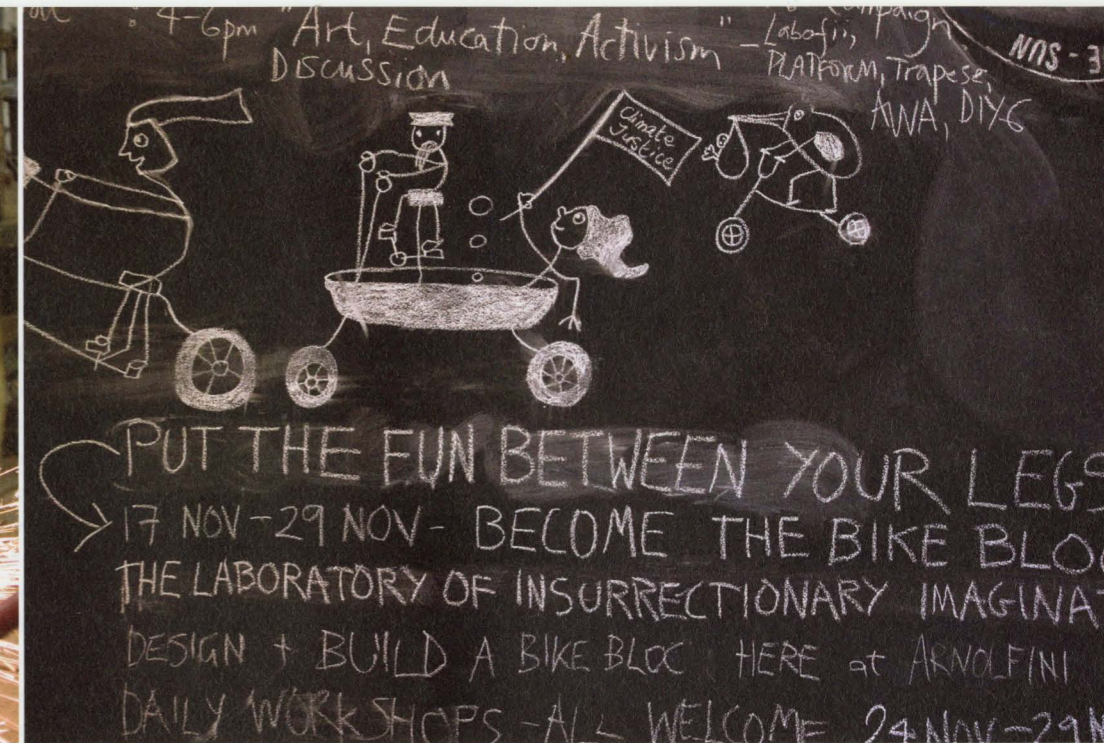 4-6pm "Art, Education, Activism" - Labofii,
Discussion PLATFORM, Trapese,
AWA, DIY6
E - SUN
Climate
Justice
PUT THE FUN BETWEEN YOUR LEGS
17 NOV - 29 NOV - BECOME THE BIKE BLOC
THE LABORATORY OF INSURRECTIONARY IMAGINAT
DESIGN + BUILD A BIKE BLOC HERE at ARNOLFINI
DAILY WORKSHOPS - ALL WELCOME 24 NOV - 29 N